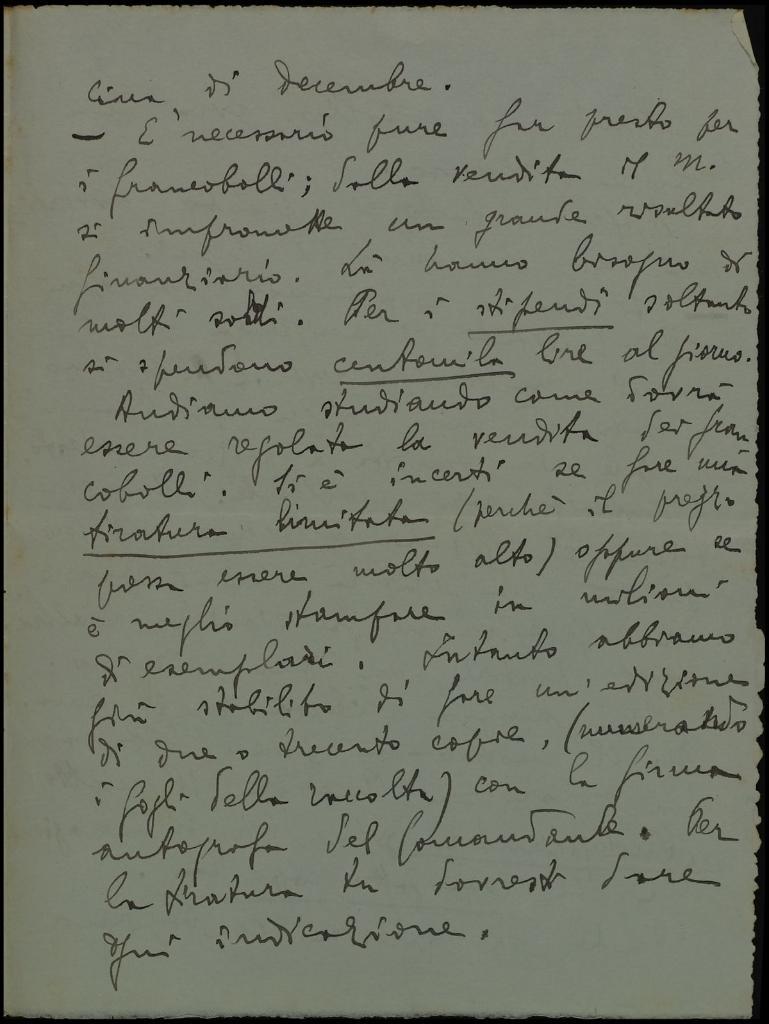 cina di decembre.
— E' necessario pure far presto per
i francobolli; dalla vendita il M.
si impromette un grande risultato
finanziario. Là hanno bisogno di
molti soldi. Per i stipendi soltanto
si spendono centomila lire al giorno.
Andiamo studiando come dovrà
essere regolata la vendita dei fran
cobolli. Si è incerti se fare una
tiratura limitata (perchè il prezzo
possa essere molto alto) oppure se
è meglio stampare in milioni
di esemplari. Intanto abbiamo
già stabilito di fare un'edizione
di due o trecento copie, (numerando
i fogli della raccolta) con la firma
autografa del Comandante. Per
la tiratura tu dovresti dare
ogni indicazione.